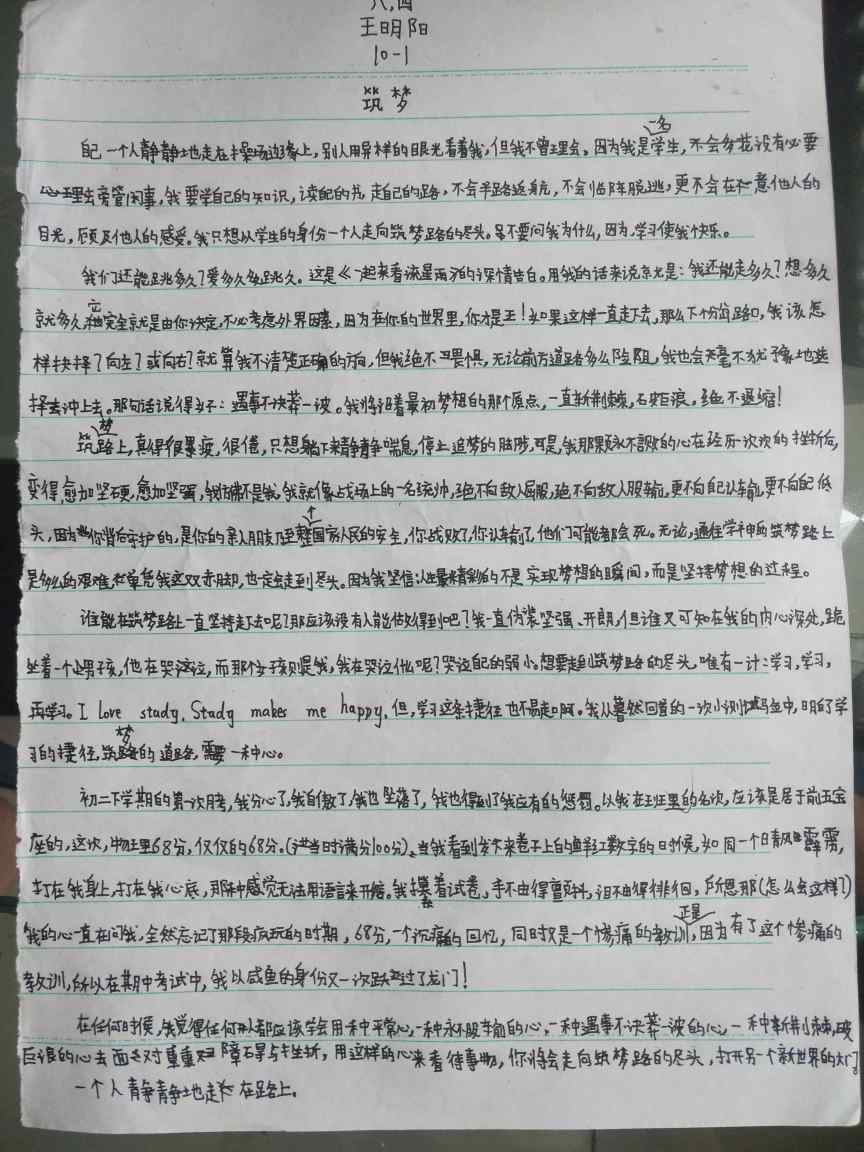 八.四
王明阳
10-1
筑梦
自己一个人静静地走在操场边缘上,别人用异样的眼光看着我,但我不曾理会,因为我是一名学生,不会多花没有必要
心理去旁管闲事,我要学自己的知识,读自己的书,走自己的路,不会半路返航,不会临阵脱逃,更不会在意他人的
目光,顾及他人的感受。我只想以学生的身份一个人走向筑梦路的尽头。虽不要问我为什么,因为,学习使我快乐。
我们还能跳多久?爱多久跳多久。这是《一起来看流星雨》的深情告白。用我的话来说就是:我还能走多久?想多久
就多久,它完全就是由你决定,不必考虑外界因素,因为在你的世界里,你才是王!如果这样一直走下去,那么下个分岔路口,我该怎
样抉择?向左?或向右?就算我不清楚正确的方向,但我绝不畏惧,无论前方道路多么险阻,我也会毫不犹豫地选
择去冲上去。那句话说得好:遇事不决莽一波。我将沿着最初梦想的那个原点,一直斩荆棘,破巨浪。绝不退缩!
筑梦路上,真得很累疲,很倦,只想躺下来静静喘息,停止追梦的脚步,可是,我那颗永不言败的心在经历一次次的挫折后,
变得愈加坚硬,愈加坚强,我仿佛不是我,我就像战场上的一名统帅,绝不向敌人屈服,绝不向敌人服输,更不向自己认输,更不向自己低
头,因为你背后守护的,是你的亲人朋友乃至整个国家人民的安全,你战败了,你认输了,他们可能都会死。无论,通往学神的筑梦路上
是多么的艰难,单凭我这双赤脚,也一定会走到尽头。因为我坚信:人生最精彩的不是实现梦想的瞬间,而是坚持梦想的过程。
谁能在筑梦路上一直坚持走下去呢?那应该没有人能做得到吧?我一直伪装坚强、开朗,但谁又可知在我的内心深处,跪
坐着一个小男孩,他在哭泣,而那个孩则是我,我在哭泣什么呢?哭泣自己的弱小。想要走到筑梦路的尽头,唯有一计:学习,学习,
再学习。I love study, Study makes me happy,但,学习这条捷径也不易走啊。我从蓦然回首的一次小测试中,明白了学
习的捷径,筑梦路的道路,需要一种心。
初二下学期的第一次月考,我分心了,我自傲了,我也坠落了,我也得到了我应有的惩罚。以我在班里的名次,应该是居于前五宝
座的,这次,物理68分,仅仅的68分。(注当时满分100分),当我看到发下来卷子上的鲜红数字的时候,如同一个日青风霹雳,
打在我身上,打在我心底,那种感觉无法用语言来形容。我攥着试卷,手不由得颤抖,泪不由得徘徊,所思那(怎么会这样?)
我的心一直在问我,全然忘记了那段疯玩的时期,68分,一个沉痛的回忆,同时又是一个惨痛的教训,正是因为有了这个惨痛的
教训,所以在期中考试中,我以咸鱼的身份又一次跃过了龙门!
在任何时候,我觉得任何人都应该学会用一种平常心,一种永不服输的心,一种遇事不决莽一波的心,一种斩荆棘,破
巨浪的心去面对重重障碍与挫折,用这样的心来看待事物,你将会走向筑梦路的尽头,打开另一个新世界的大门。
一个人静静地走在路上。